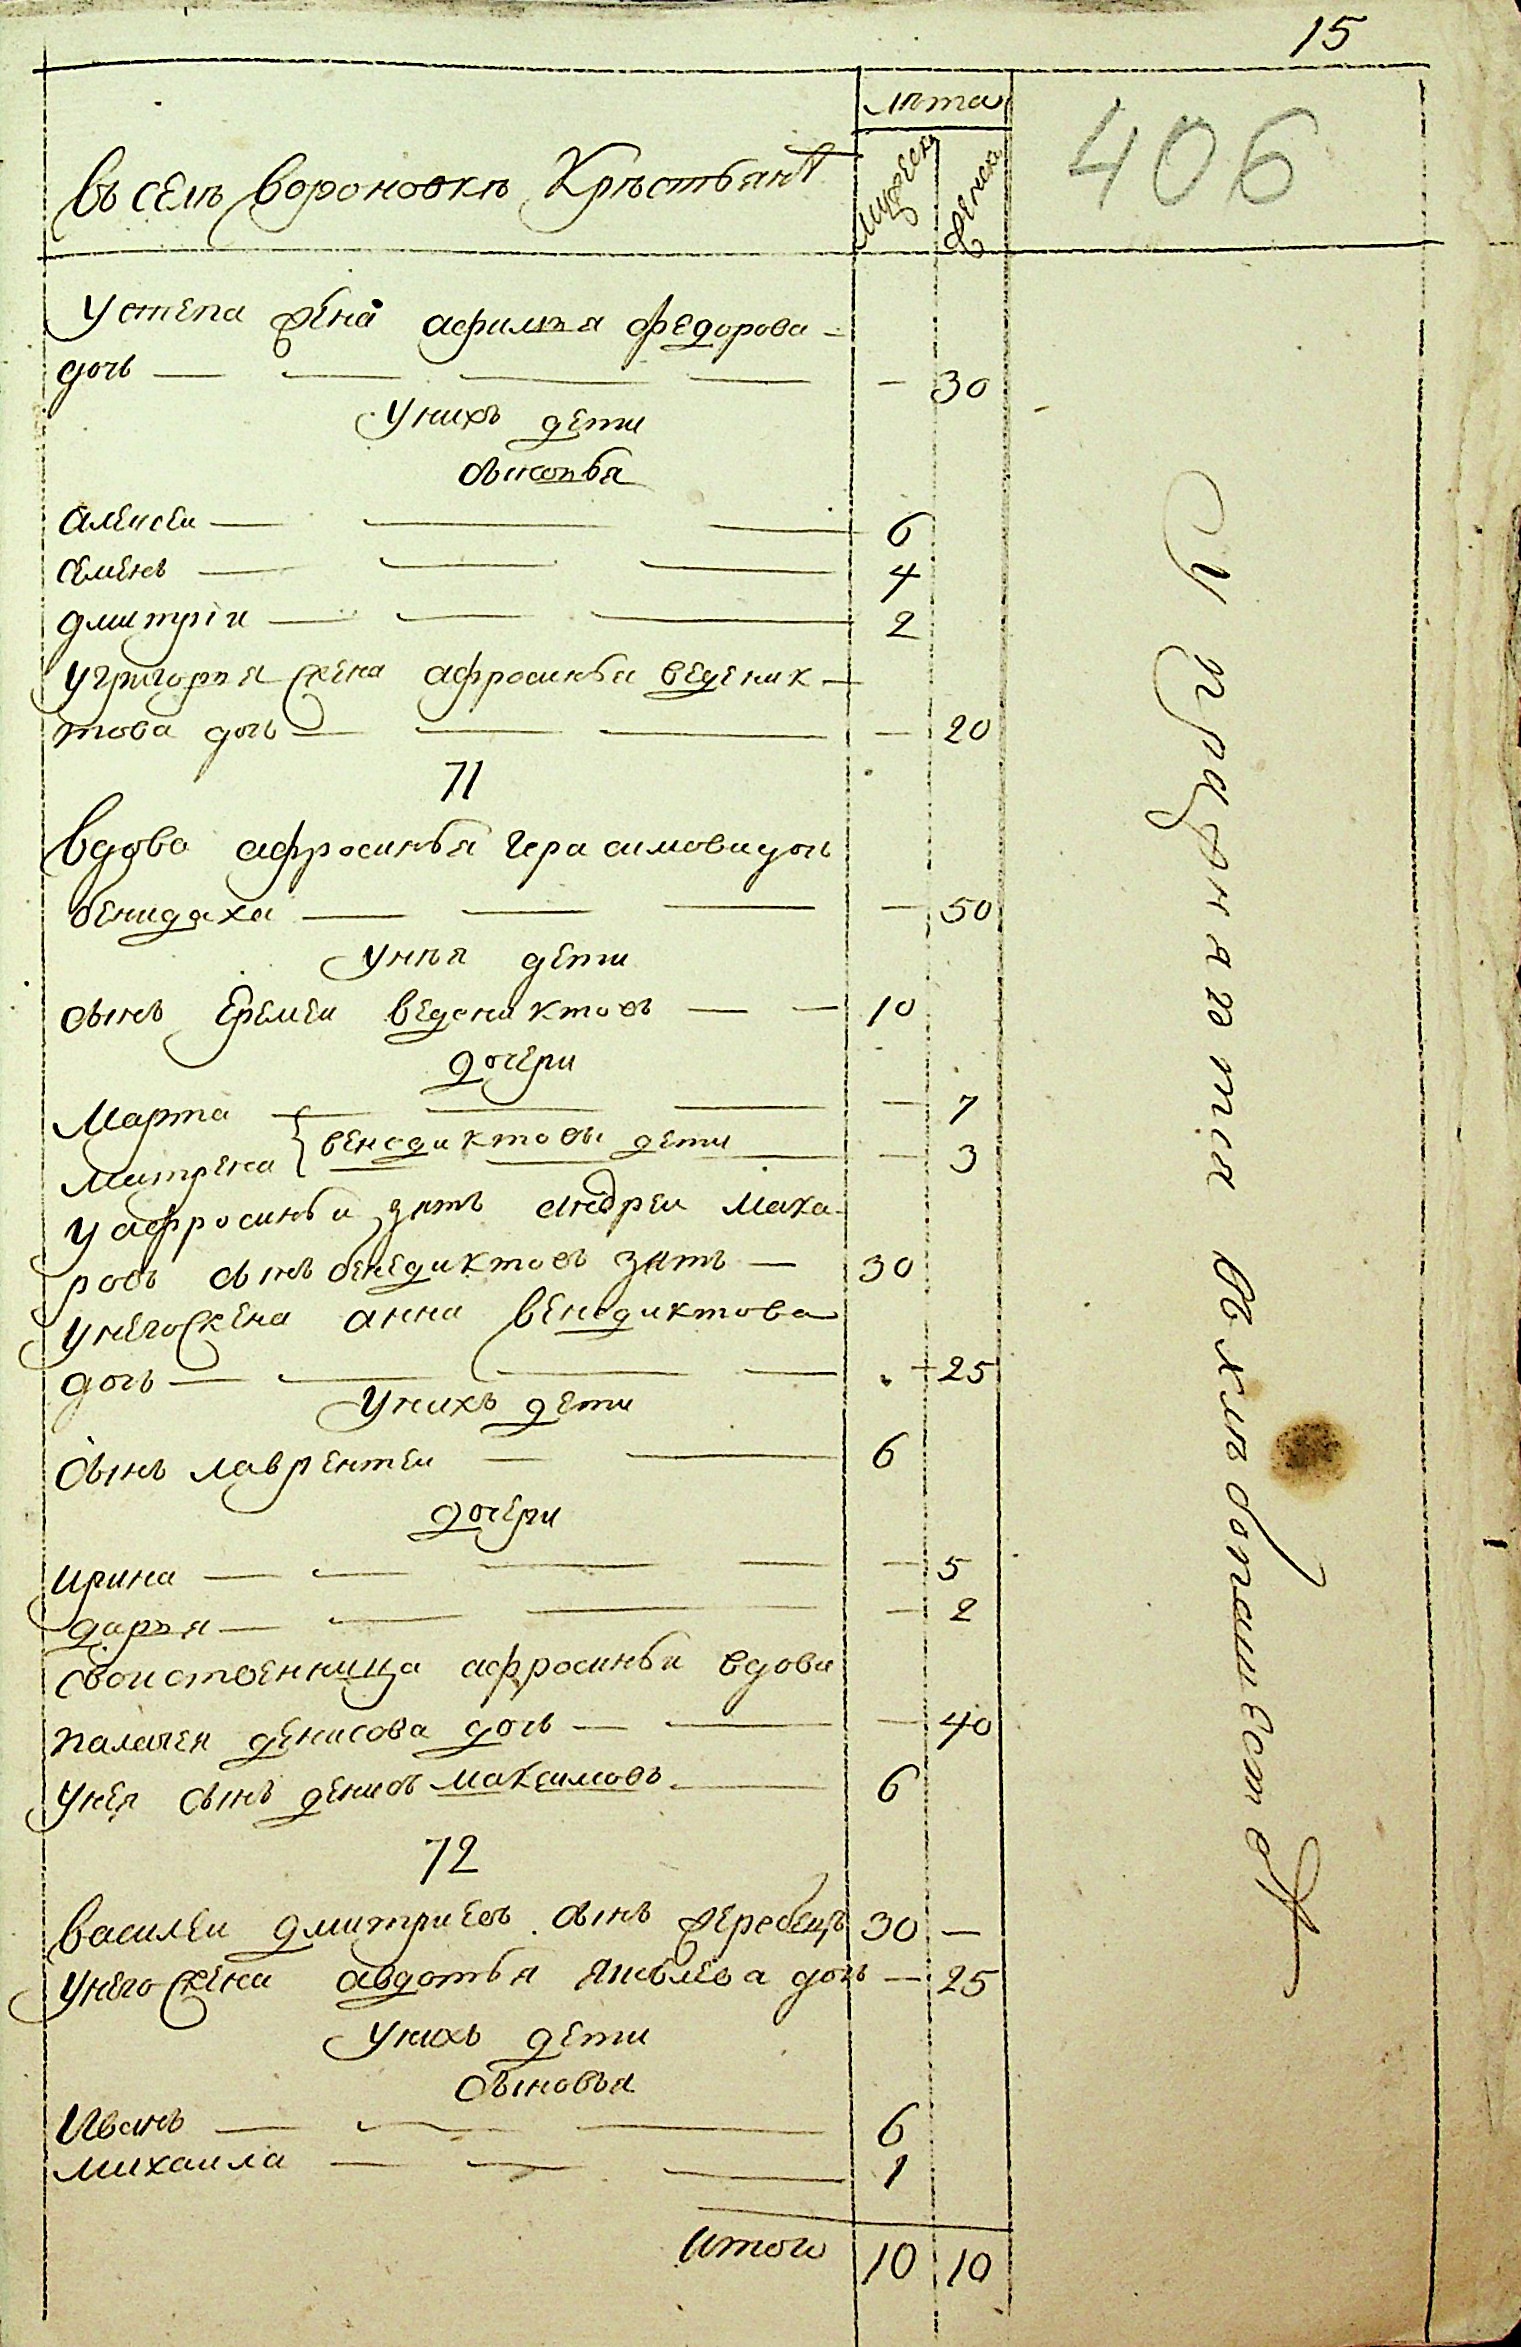 15
лѣта
406
въ селѣ вороновкѣ Крѣстьянъ
мужеска
женска
у степа жена афимья федорова
дочь — — — — — 30
У нихъ дети
сыновья
алексеи — — — 6
семенъ — — — 4
дмитріи — — — 2
у григорья жена афросинья веденик
това дочь — — — — 20
71
вдова афросинья герасимова дочь
бенидаха — — — — 50
У нѣя дети
сынъ Еремеи ведениктовъ — — 10
дочери
Марта — — — — 7
Матрена { венедиктовы дети — 3
у афросиньи зять андреи Мака
ровъ сынъ бенедиктовъ зять — 30
у него жена анна венедиктова
дочь — — — — — 25
У нихъ дети
сынъ лаврентеи — — 6
дочери
ирина — — — — — 5
дарья — — — — 2
своиственница афросиньи вдова
палагея денисова дочь — — — 40
у нея сынъ денисъ максимовъ — 6
72
василеи дмитриевъ сынъ жеребецъ 30 —
у него жена авдотья яковлева дочь — 25
У нихъ дети
сыновья
Иванъ — — — 6
михаила — — — 1
Итого 10 10
Упражняется въ хлебопашестве